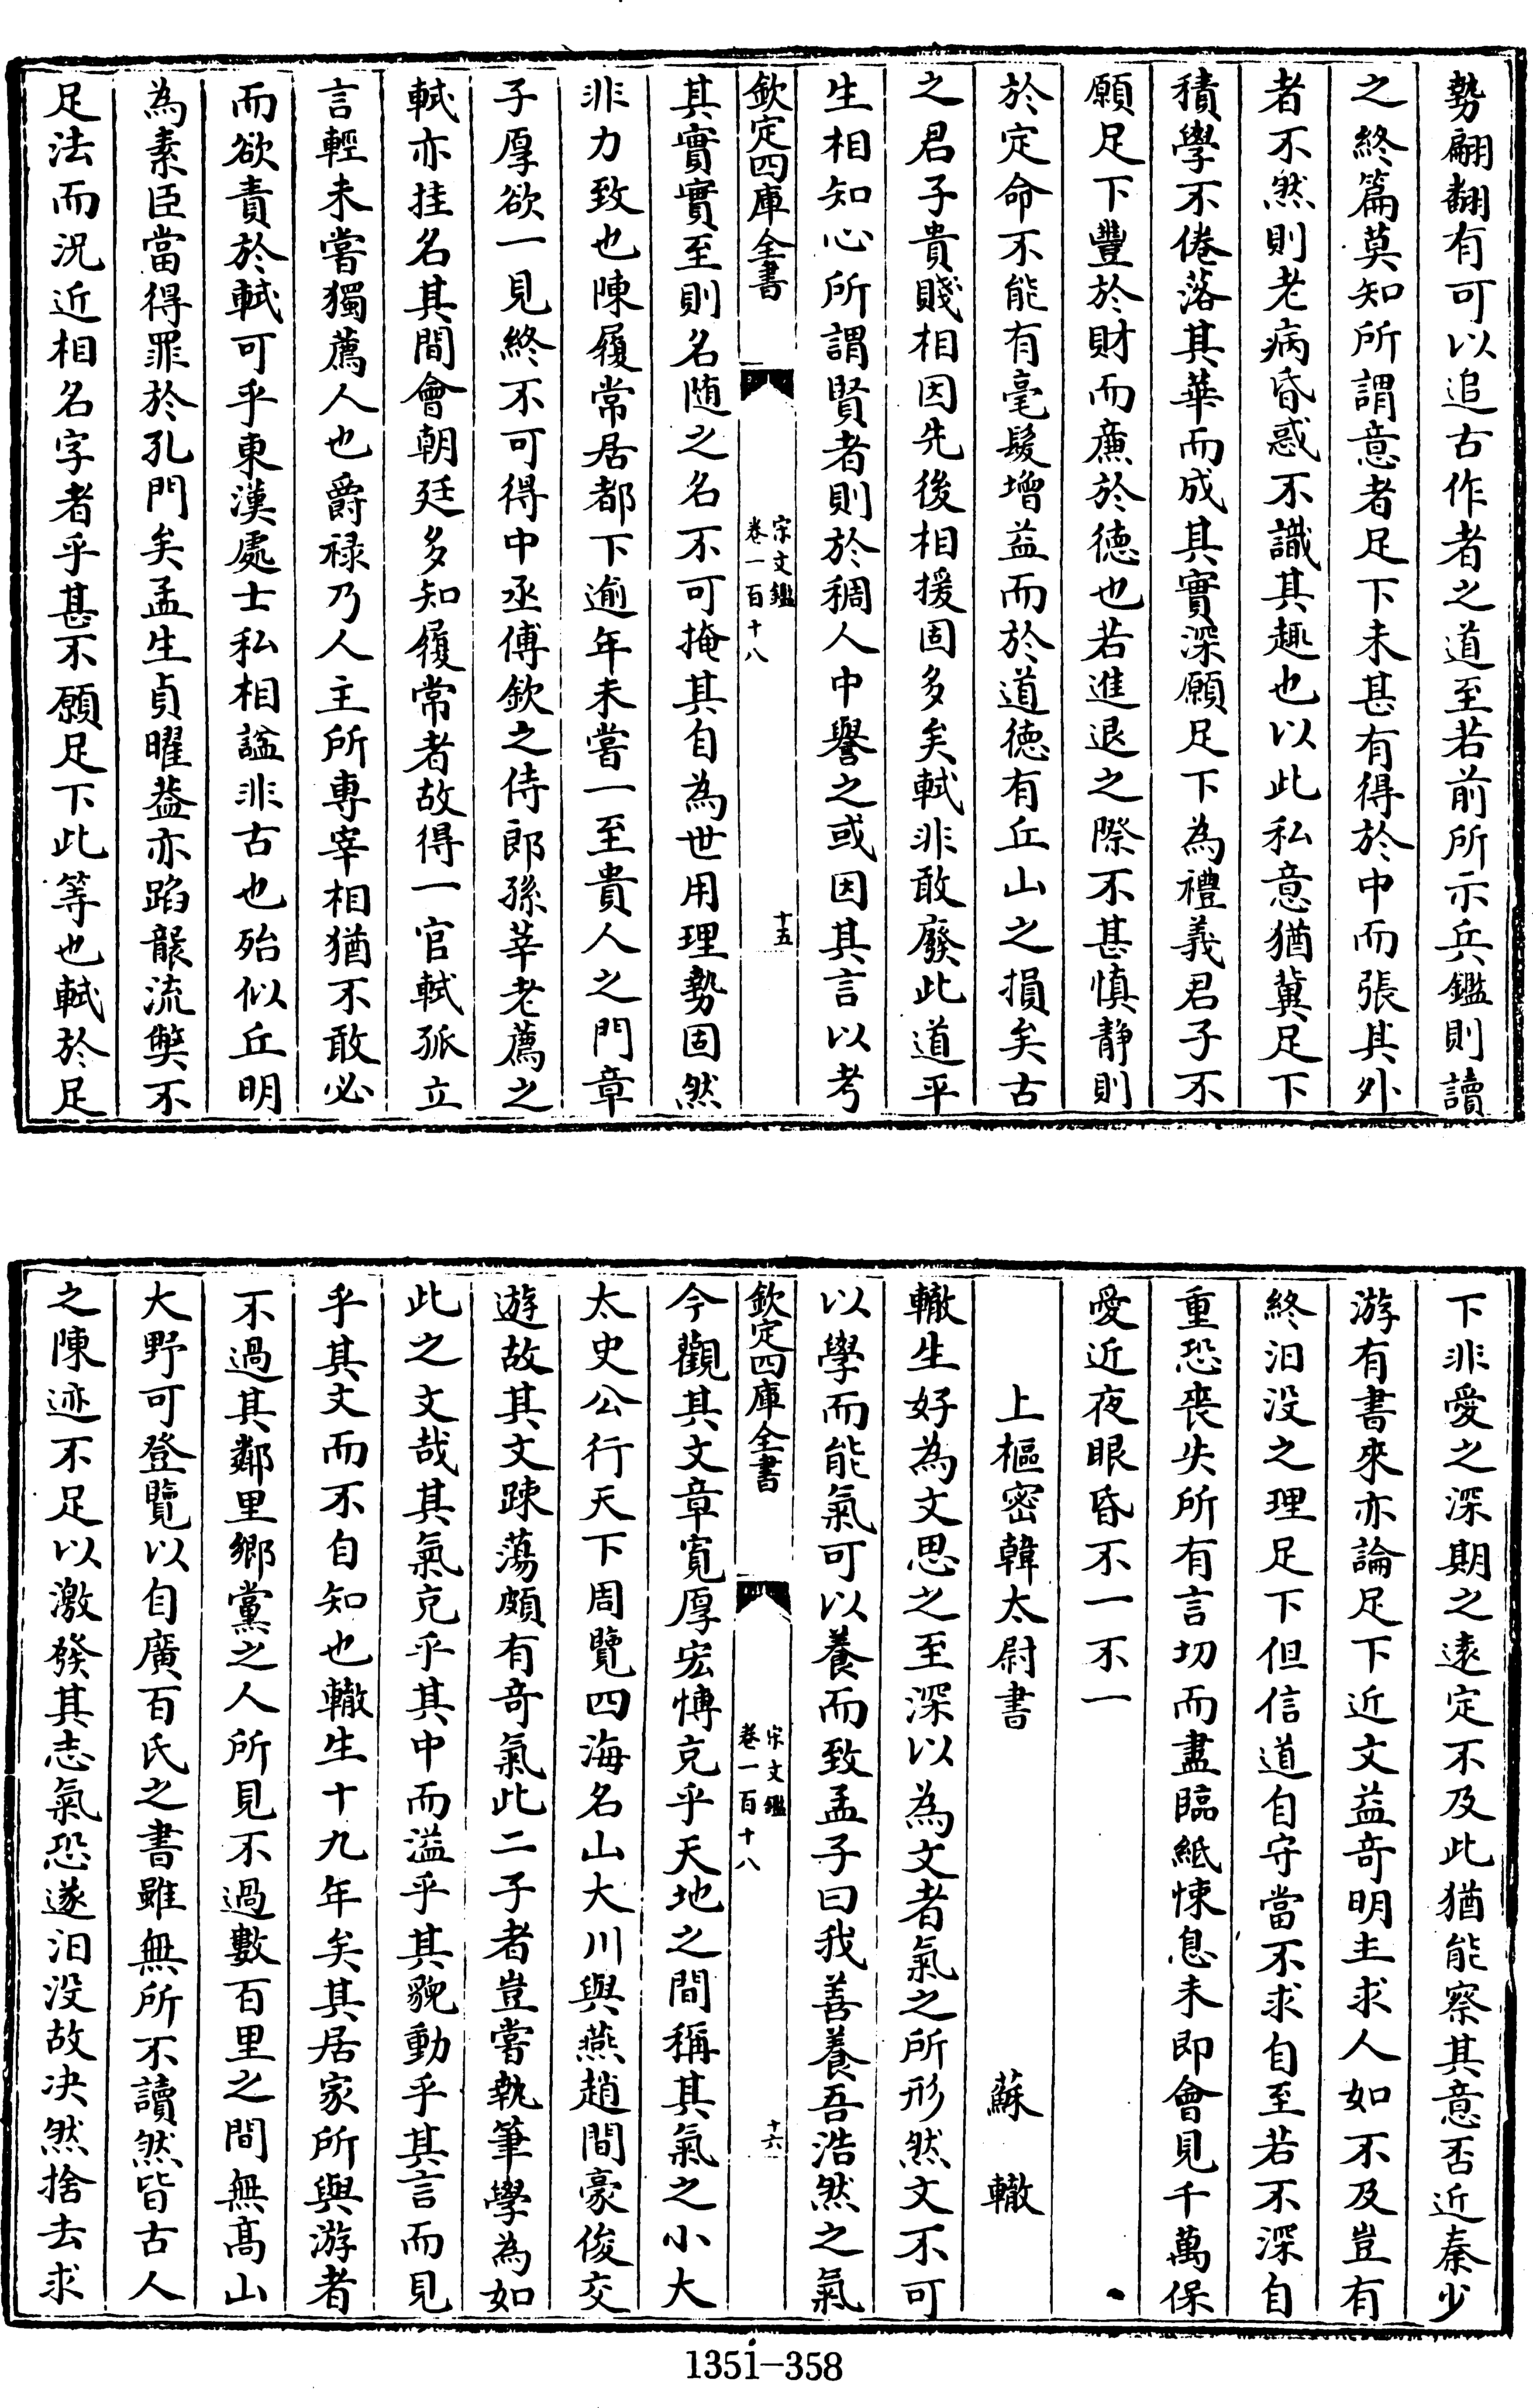 勢翩翻有可以追古作者之道至若前所示兵鑑則讀
之終篇莫知所謂意者足下未甚有得於中而張其外
者不然則老病昏惑不識其趣也以此私意猶冀足下
積學不倦落其華而成其實深願足下為禮義君子不
願足下豐於財而廉於德也若進退之際不甚慎靜則
於定命不能有毫髮增益而於道徳有丘山之損矣古
之君子貴賤相因先後相援固多矣軾非敢廢此道平
生相知心所謂賢者則於稠人中譽之或因其言以考
欽定四庫全書
宋文鑑
卷一百十八
十五
其實實至則名随之名不可掩其自為世用理勢固然
非力致也陳履常居都下逾年未嘗一至貴人之門章
子厚欲一見終不可得中丞傅欽之侍郎孫莘老薦之
軾亦挂名其間會朝廷多知履常者故得一官軾孤立
言輕未嘗獨薦人也爵禄乃人主所専宰相猶不敢必
而欲責於軾可乎東漢處士私相諡非古也殆似丘明
為素臣當得罪於孔門矣孟生貞曜葢亦蹈襲流獘不
足法而況近相名字者乎甚不願足下此等也軾於足
下非愛之深期之逺定不及此猶能察其意否近秦少
游有書來亦論足下近文益竒明主求人如不及豈有
終汩没之理足下但信道自守當不求自至若不深自
重恐喪失所有言切而盡臨紙悚息未即會見千萬保
愛近夜眼昏不一不一
上樞密韓太尉書
蘇轍
轍生好為文思之至深以為文者氣之所形然文不可
以學而能氣可以養而致孟子曰我善養吾浩然之氣
欽定四庫全書
宋文鑑
卷一百十八
十六
今觀其文章寛厚宏愽充乎天地之間稱其氣之小大
太史公行天下周覽四海名山大川與燕趙間豪俊交
遊故其文踈蕩頗有竒氣此二子者豈嘗執筆學為如
此之文哉其氣充乎其中而溢乎其貌動乎其言而見
乎其文而不自知也轍生十九年矣其居家所與游者
不過其鄰里鄉黨之人所見不過數百里之間無髙山
大野可登覽以自廣百氏之書雖無所不讀然皆古人
之陳迹不足以激發其志氣恐遂汩没故决然捨去求
1351-358